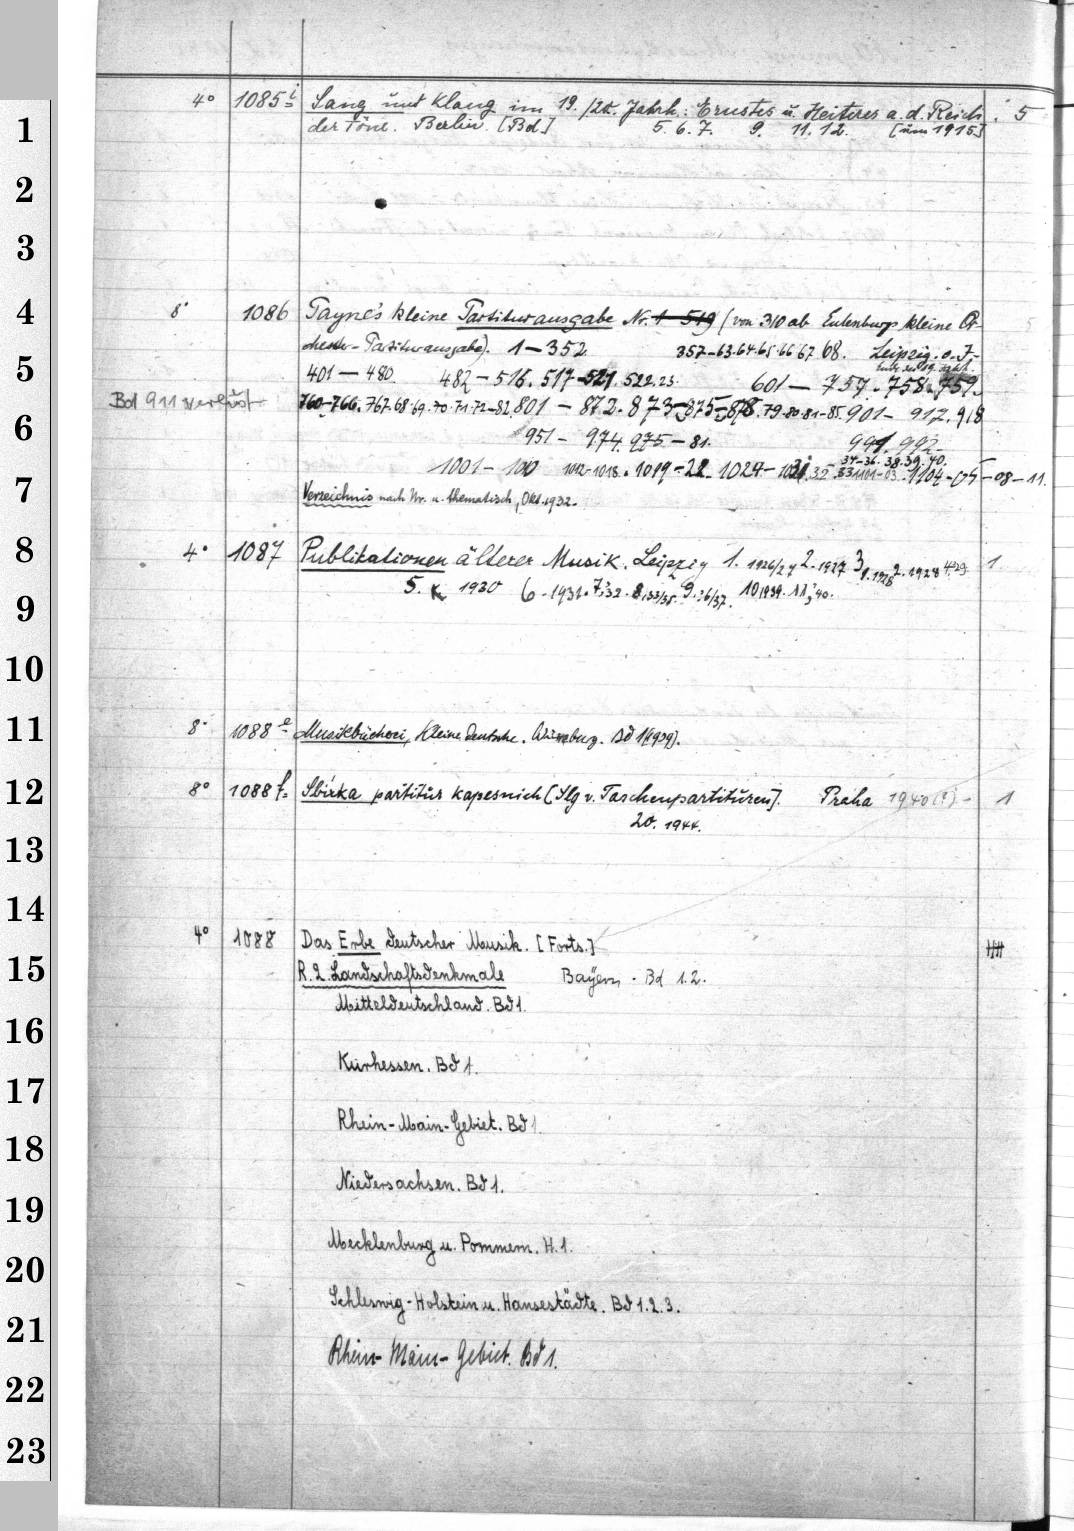 1
2
3
4
5
6
7
8
9
10
11
12
13
14
15
16
17
18
19
20
21
22
23
4° 1085 i Sang und Klang im 19./20. Jahrh.: Ernstes u. Heiteres a. d. Reich 5
der Töne. Berlin. [Bd.] 5. 6. 7. 9. 11. 12. [um 1915]
8° 1086 Payne's kleine Partiturausgabe Nr. 1–519 (von 310 ab Eulenburgs kleine Or-
chester-Partiturausgabe). 1–352 357–63.64.65.66.67.68. Leipzig. o. J.
401 – 480. 482 – 516. 517–521. 522.23. 601 – 757. 758. 759.
Bd 911 verlust
760–766. 767.68.69.70.71.72–82. 801 – 872. 873–875–878. 79.80.81–85. 901 – 912. 918
951 – 974. 975–81. 991. 992.
34–36. 38. 39. 40.
1001 – 100 1012–1018. 1019–22. 1024– 1101–03. 1104–05–08–11.
Verzeichnis nach Nr. u. thematisch, Okt. 1932.
4° 1087 Publikationen älterer Musik. Leipzig 1. 1926/27 2. 1927 3,1. 1928 2. 1928 4. 29. 1
5. 1930 6. 1931. 7. 32. 8. 33/35. 9. 36/37. 10. 1939. 11. 40.
8° 1088 e Musikbücherei, Kleine deutsche. Würzburg. Bd 1 (1939).
8° 1088 f. Sbírka partitur kapesních [Slg v. Taschenpartituren]. Praha 1940(?)– 1
20. 1944.
4° 1088 Das Erbe deutscher Musik. [Forts.]
R. 2. Landschaftsdenkmale Bayern. Bd 1. 2.
Mitteldeutschland. Bd 1.
Kurhessen. Bd 1.
Rhein-Main-Gebiet. Bd 1.
Niedersachsen. Bd 1.
Mecklenburg u. Pommern. H. 1.
Schleswig-Holstein u. Hansestädte. Bd 1. 2. 3.
Rhein-Main-Gebiet. Bd 1.